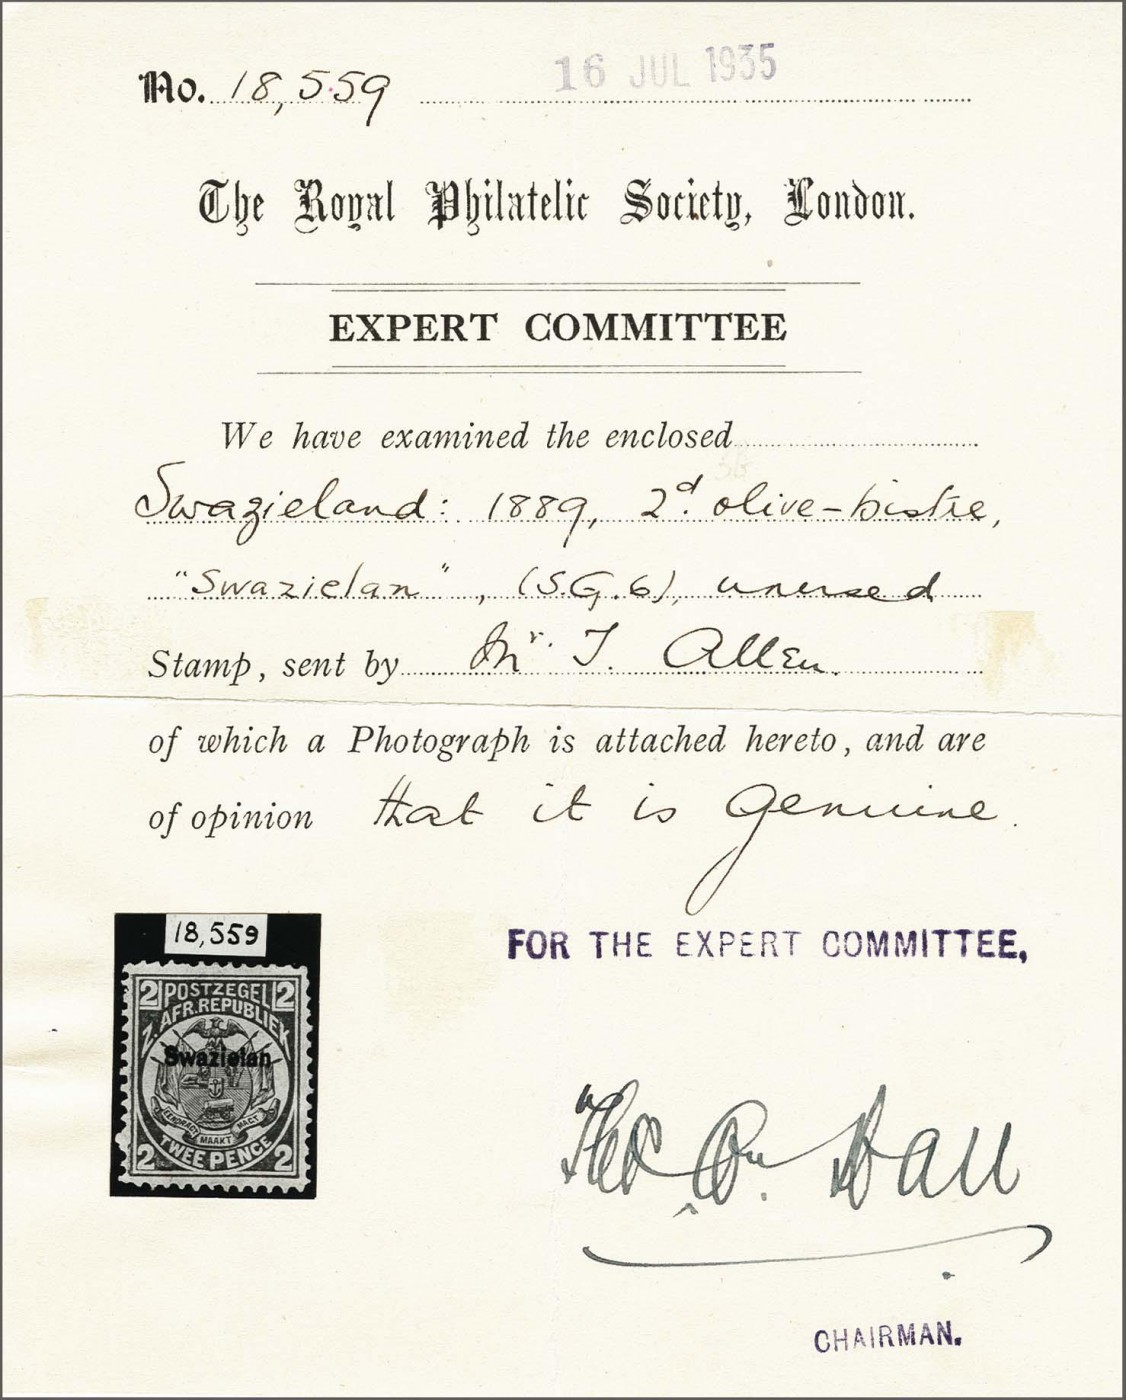 No. 18,559
16 JUL 1935
The Royal Philatelic Society, London.
EXPERT COMMITTEE
We have examined the enclosed
Swazieland: 1889, 2d. olive-bistre,
"Swazielan", (S.G.6), unused
Stamp, sent by Mr. T. Allen.
of which a Photograph is attached hereto, and are
of opinion that it is genuine.
18,559
FOR THE EXPERT COMMITTEE,
2 POSTZEGEL 2
Z. AFR. REPUBLIEK
Swazielan
EENDRAGT MAAKT MAGT
2 TWEE PENCE 2
Hall
CHAIRMAN.